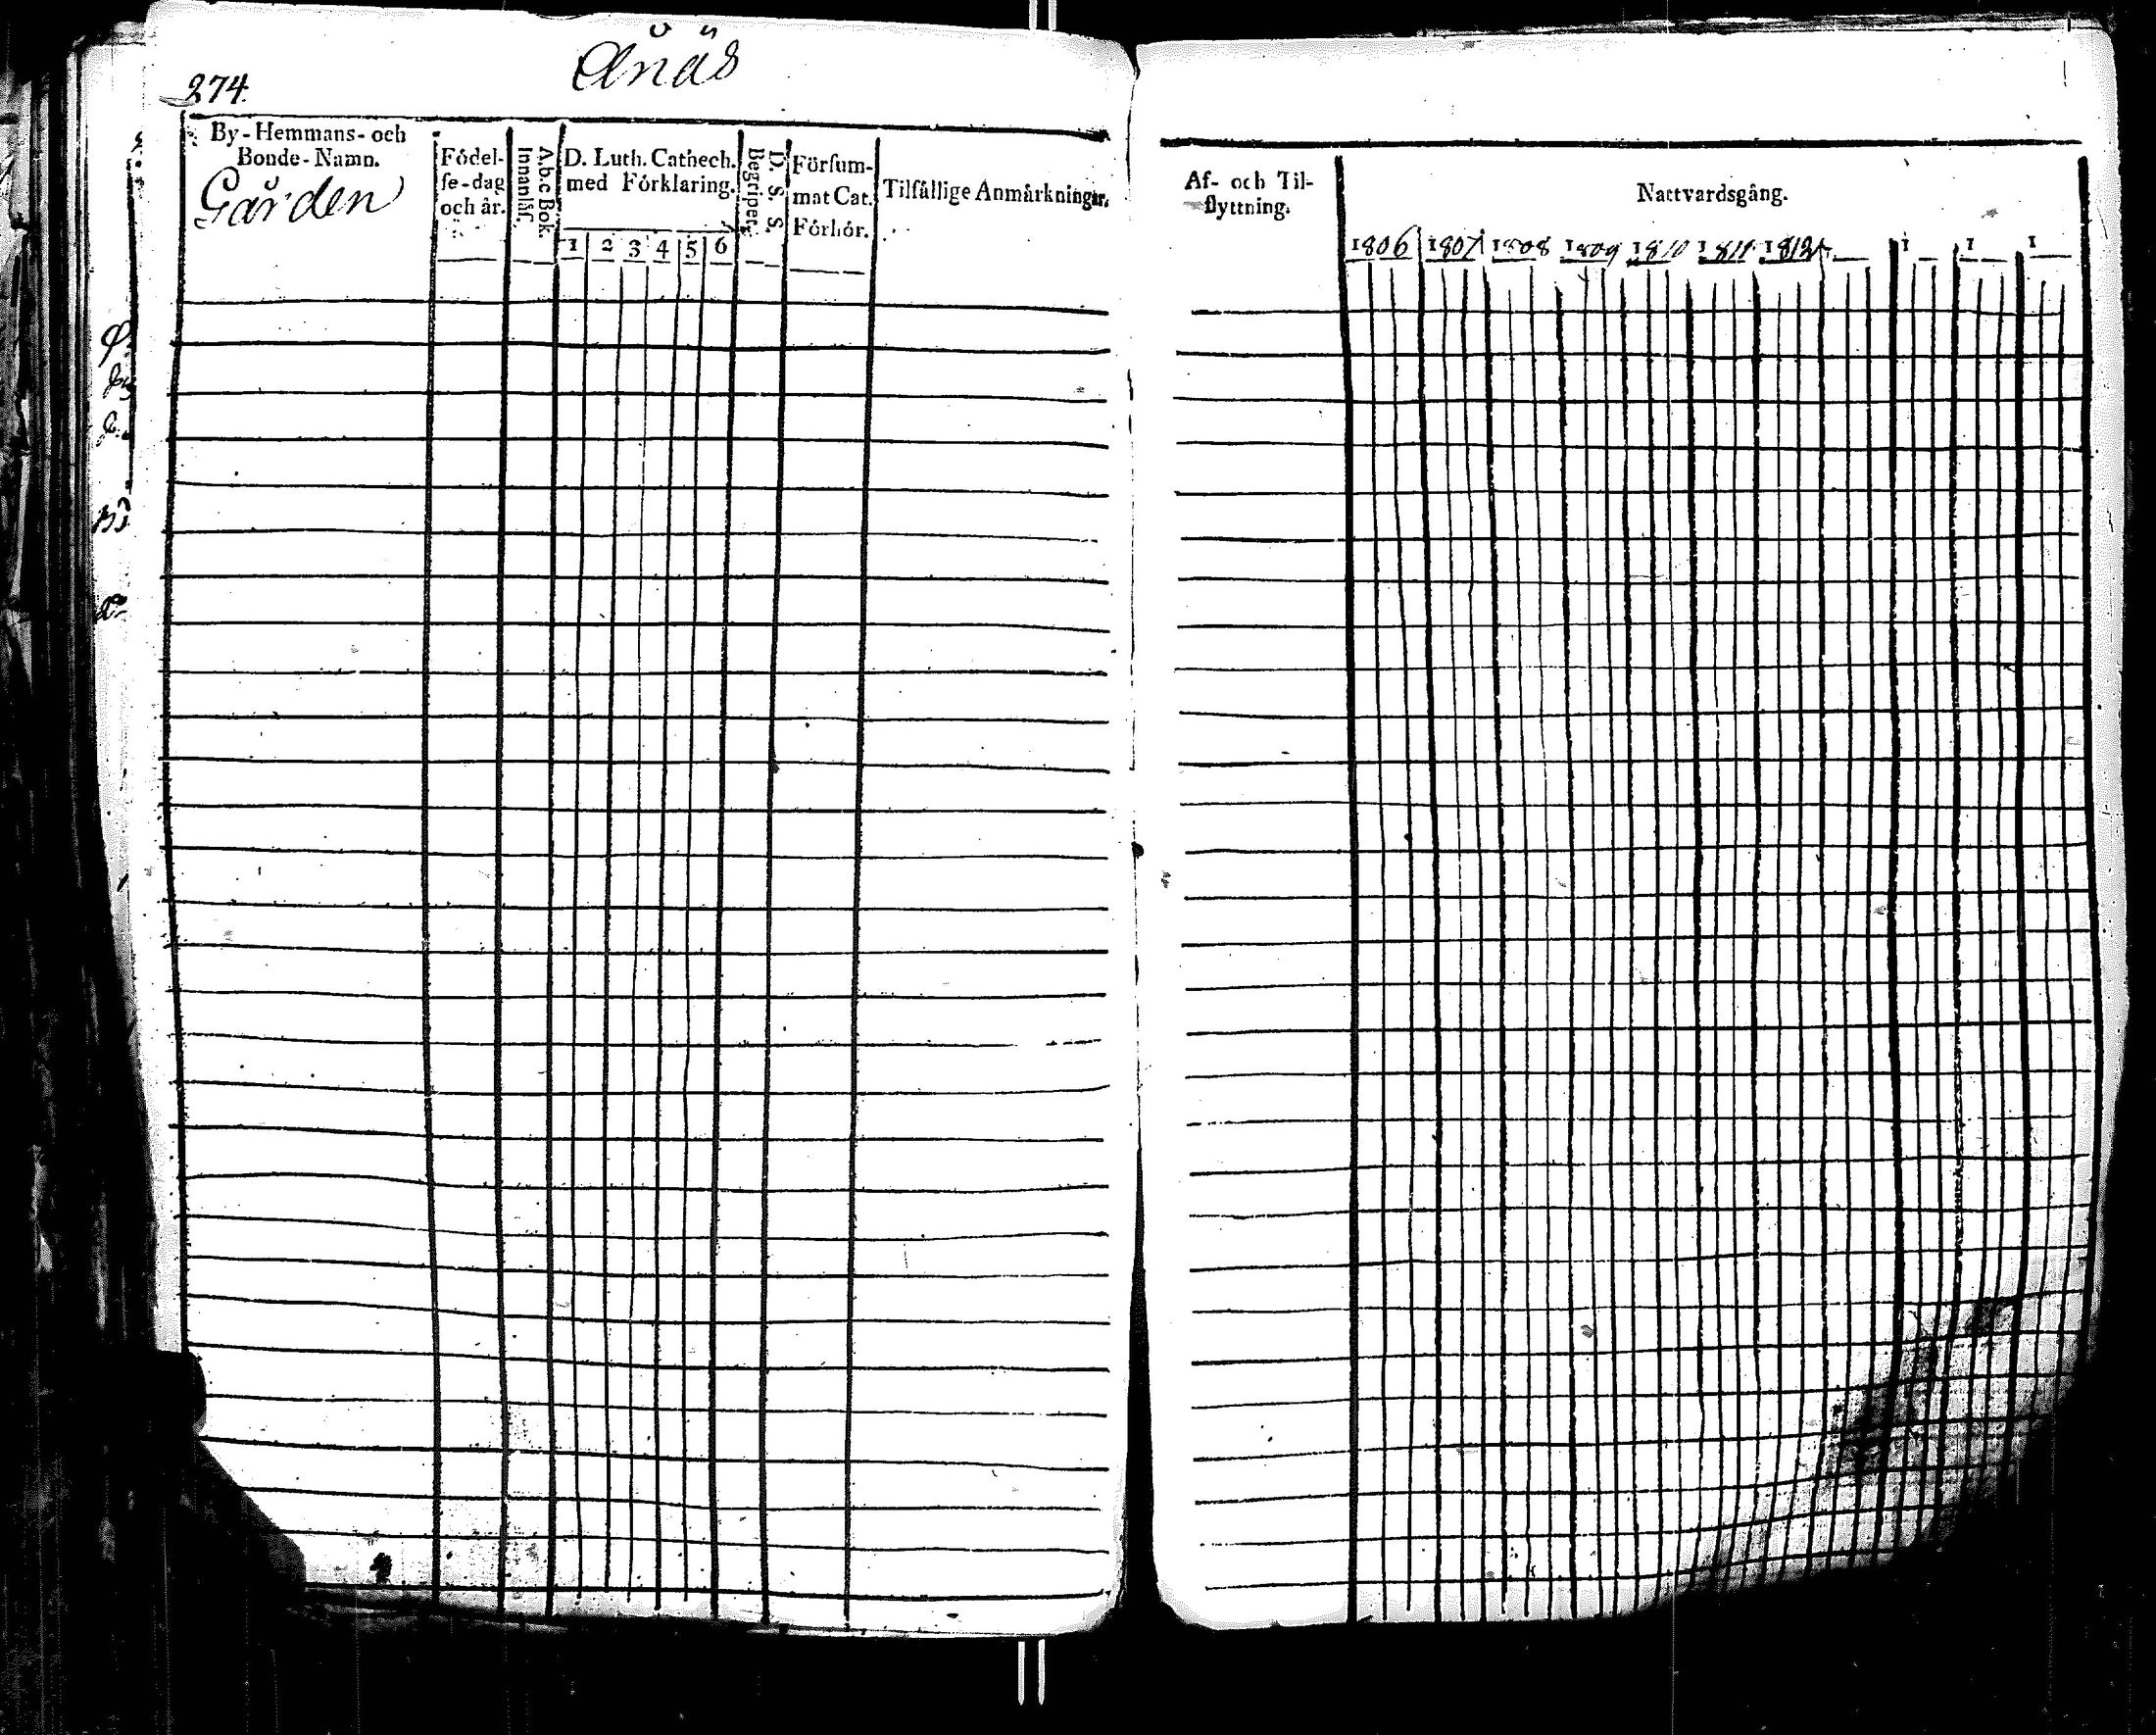 274.
Ånäs
By-Hemmans- och
Bonde-Namn.
Gården
Födel-
se-dag
och år.
Abc Bok.
Innanläs.
D. Luth. Cathech.
med Förklaring.
1 2 3 4 5 6
D. S. S.
Begripet.
Försum-
mat Cat.
Förhör.
Tilfällige Anmärkningar.
Af- och Til-
flyttning.
Nattvardsgång.
1806 1807 1808 1809 1810 1811 1812 1 1 1 1